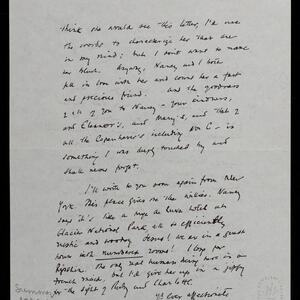 think she would see this letter, I'd use
the words to characterize her that are
in my mind; but I don't want to make
her blush. Anyway, Nancy and I both
fell in love with her and count her a fast
and precious friend. And the goodness
of all of you to Nancy – your kindness,
and Eleanor's, and Mary's, and that of
all the Copenhavers including Mr C – is
something I was deeply touched by and
shall never forget.
I'll write to you soon again from New
York. This place gives me the willies. Nancy
says it's like a huge de luxe hotel at
Glacier National Park, all so efficiently
rustic and woodsy. Gosh! We are in a guest
house with numbered rooms! I long for
Ripshin. The only real human being here is a
French maid. But I'd give her up in a jiffy
for the sight of Ruby and Charlotte.
Yrs ever affectionately